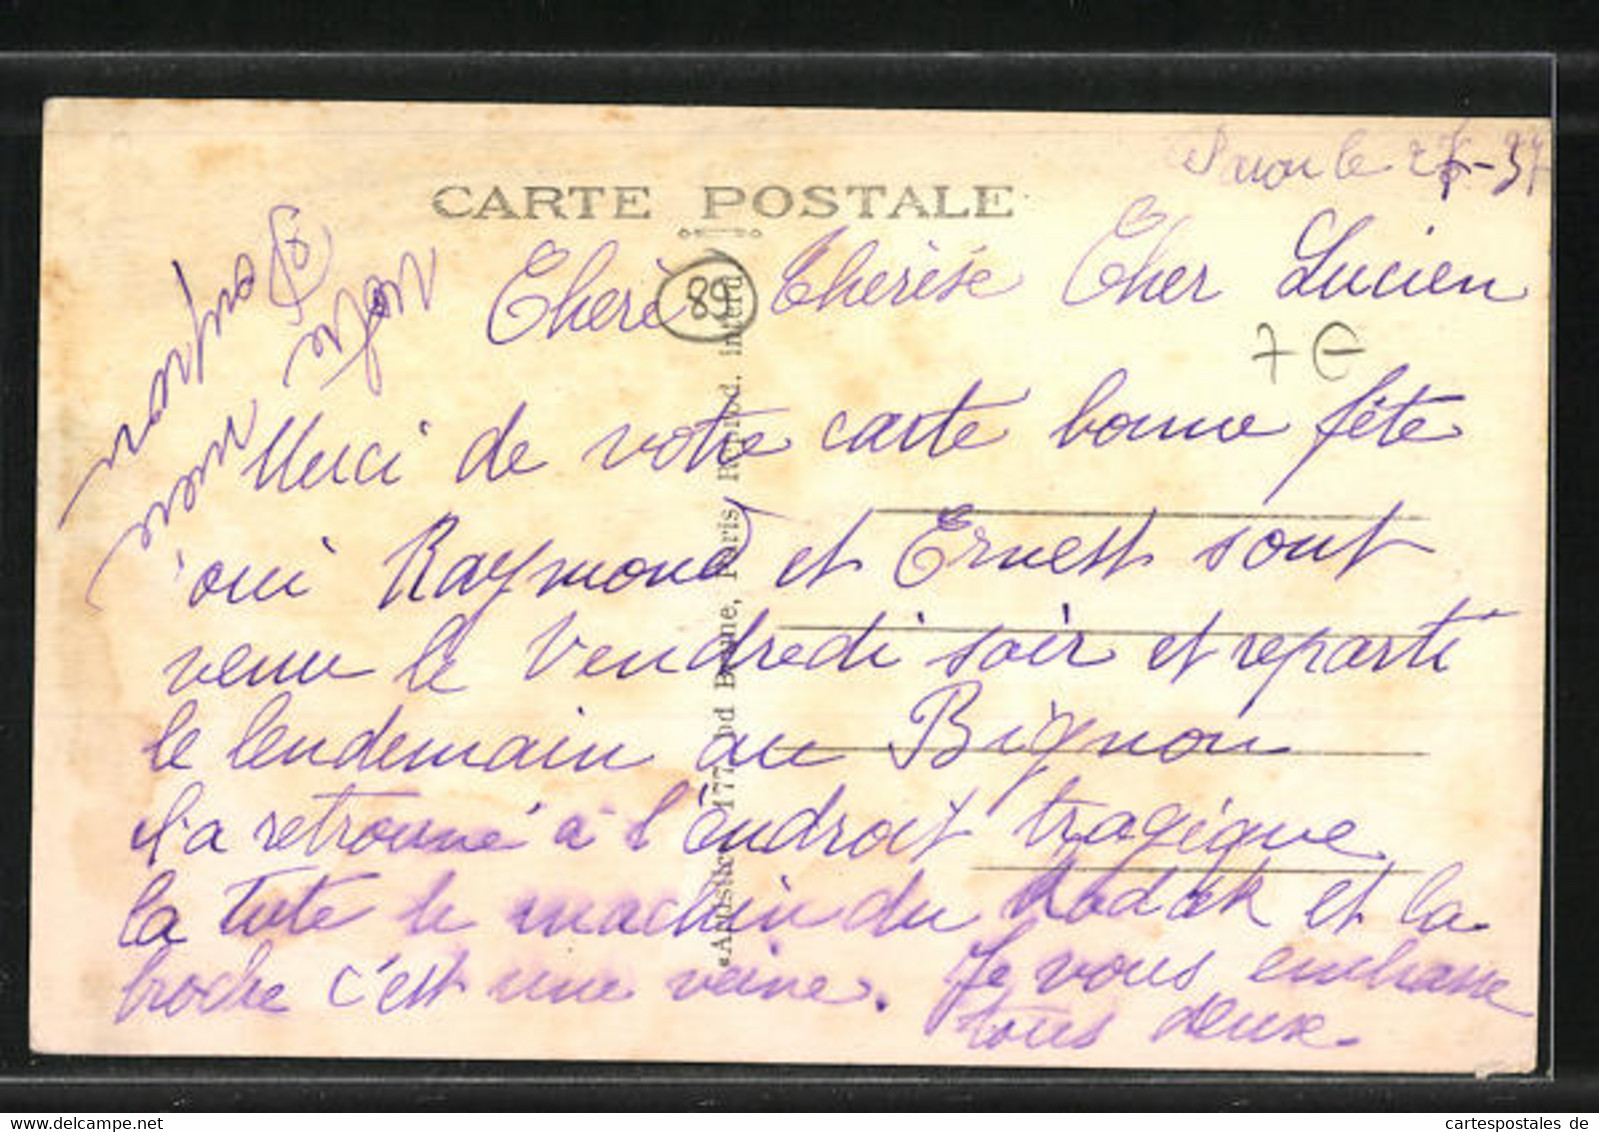 le 27-37
CARTE POSTALE
Cherè Therèse Cher Lucien
89
7 €
Merci de votre carte bonne fête
oui Raymond et Ernest sont
venu le Vendredi soir et reparti
le lendemain au Bignon
l'a retrouvé à l'endroit tragique
la tute le machin du Kodak et la
broche c'est une veine. Je vous embrasse
tous deux.
177, bd Brune, Paris, Reprod. interd.
votre
cartespostales de